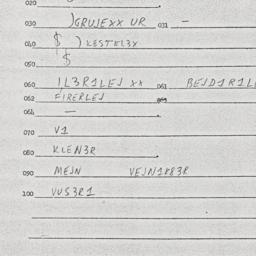 020
030 )GRUJEXX UR 031 —
040 $ ) KESTKL3X
050 $
060 1L3R1LEJ XX 061 BEJD1R1L
062 FIRERLEJ
064 —
070 V1
080 KLEN3R
090 MEJN VEJN1K83R
100 VUS3R1